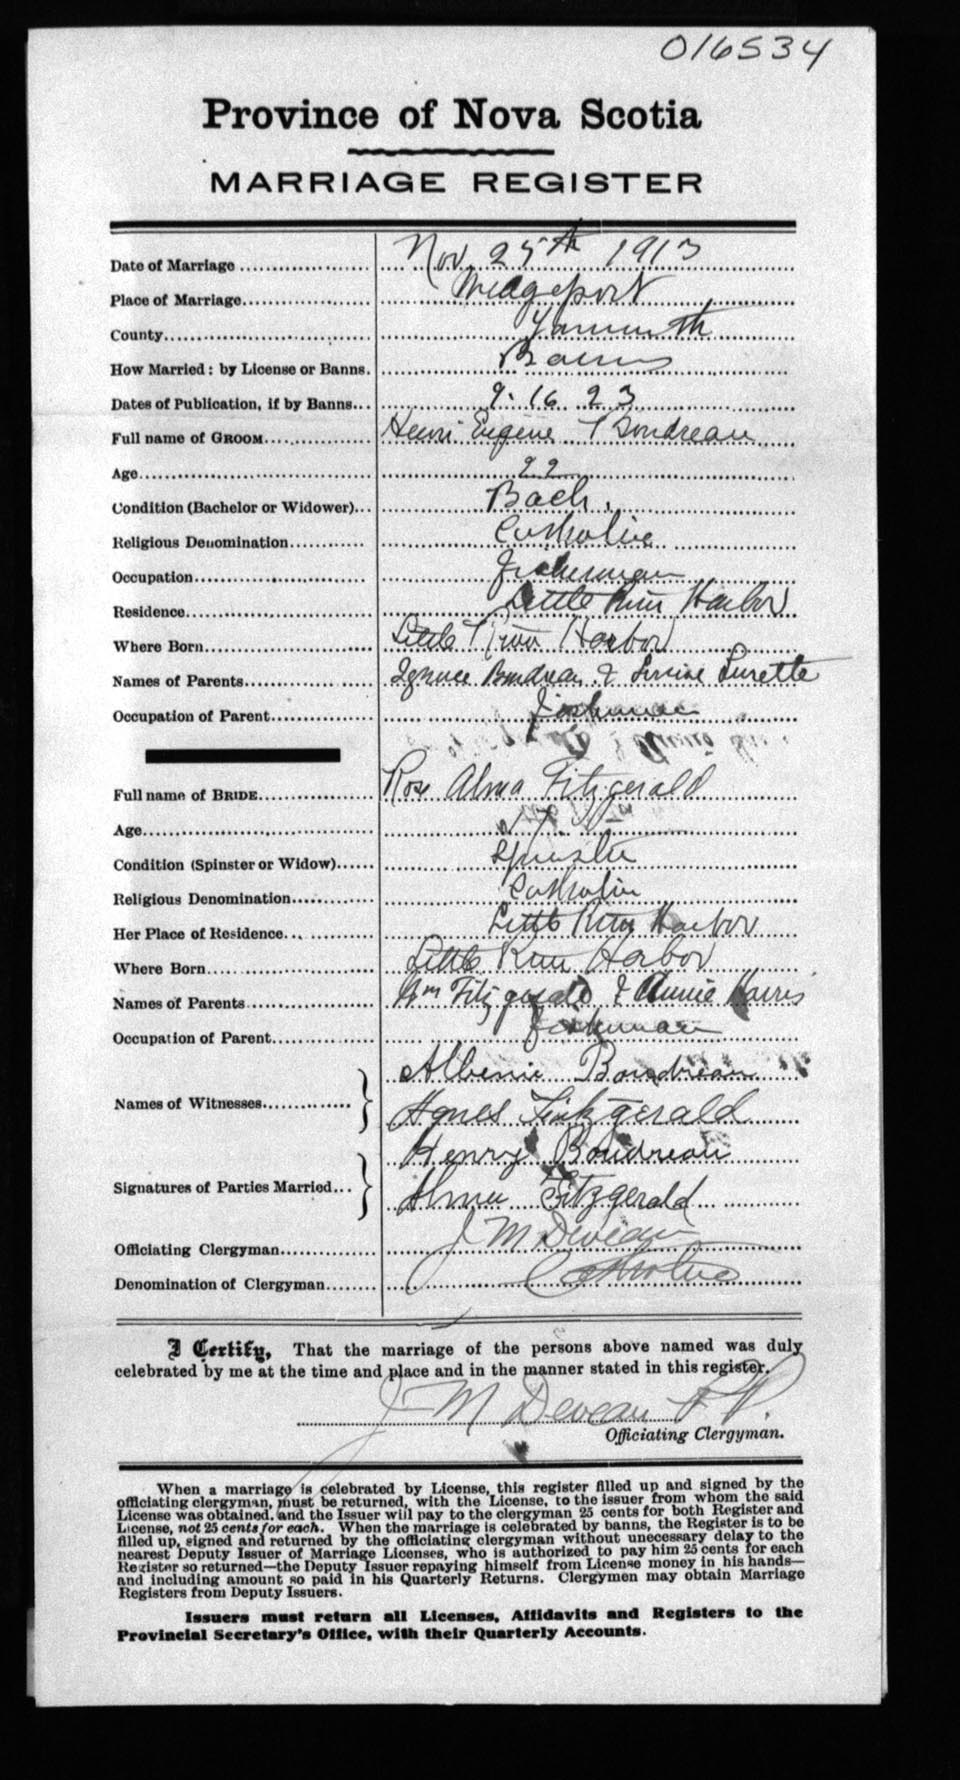 016534
Province of Nova Scotia
MARRIAGE REGISTER
Date of Marriage Nov. 25th 1913
Place of Marriage Wedgeport
County Yarmouth
How Married: by License or Banns. Banns
Dates of Publication, if by Banns 9. 16 23
Full name of GROOM Henri Eugene Boudreau
Age 22
Condition (Bachelor or Widower) Bach.
Religious Denomination Catholic
Occupation Fisherman
Residence Little River Harbor
Where Born Little River Harbor
Names of Parents Ignace Boudreau & Louise Surette
Occupation of Parent Fisherman
Full name of BRIDE Rose Alma Fitzgerald
Age
Condition (Spinster or Widow) Spinster
Religious Denomination Catholic
Her Place of Residence Little River Harbor
Where Born Little River Harbor
Names of Parents Wm Fitzgerald & Annie Harris
Occupation of Parent Fisherman
Names of Witnesses Albenie Boudreau
Agnes Fitzgerald
Signatures of Parties Married Henry Boudreau
Alma Fitzgerald
Officiating Clergyman J M Deveau
Denomination of Clergyman Catholic
I Certify, That the marriage of the persons above named was duly
celebrated by me at the time and place and in the manner stated in this register.
J M Deveau P.P.
Officiating Clergyman.
When a marriage is celebrated by License, this register filled up and signed by the
officiating clergyman, must be returned, with the License, to the issuer from whom the said
License was obtained, and the Issuer will pay to the clergyman 25 cents for both Register and
License, not 25 cents for each. When the marriage is celebrated by banns, the Register is to be
filled up, signed and returned by the officiating clergyman without unnecessary delay to the
nearest Deputy Issuer of Marriage Licenses, who is authorized to pay him 25 cents for each
Register so returned—the Deputy Issuer repaying himself from License money in his hands—
and including amount so paid in his Quarterly Returns. Clergymen may obtain Marriage
Registers from Deputy Issuers.
Issuers must return all Licenses, Affidavits and Registers to the
Provincial Secretary's Office, with their Quarterly Accounts.